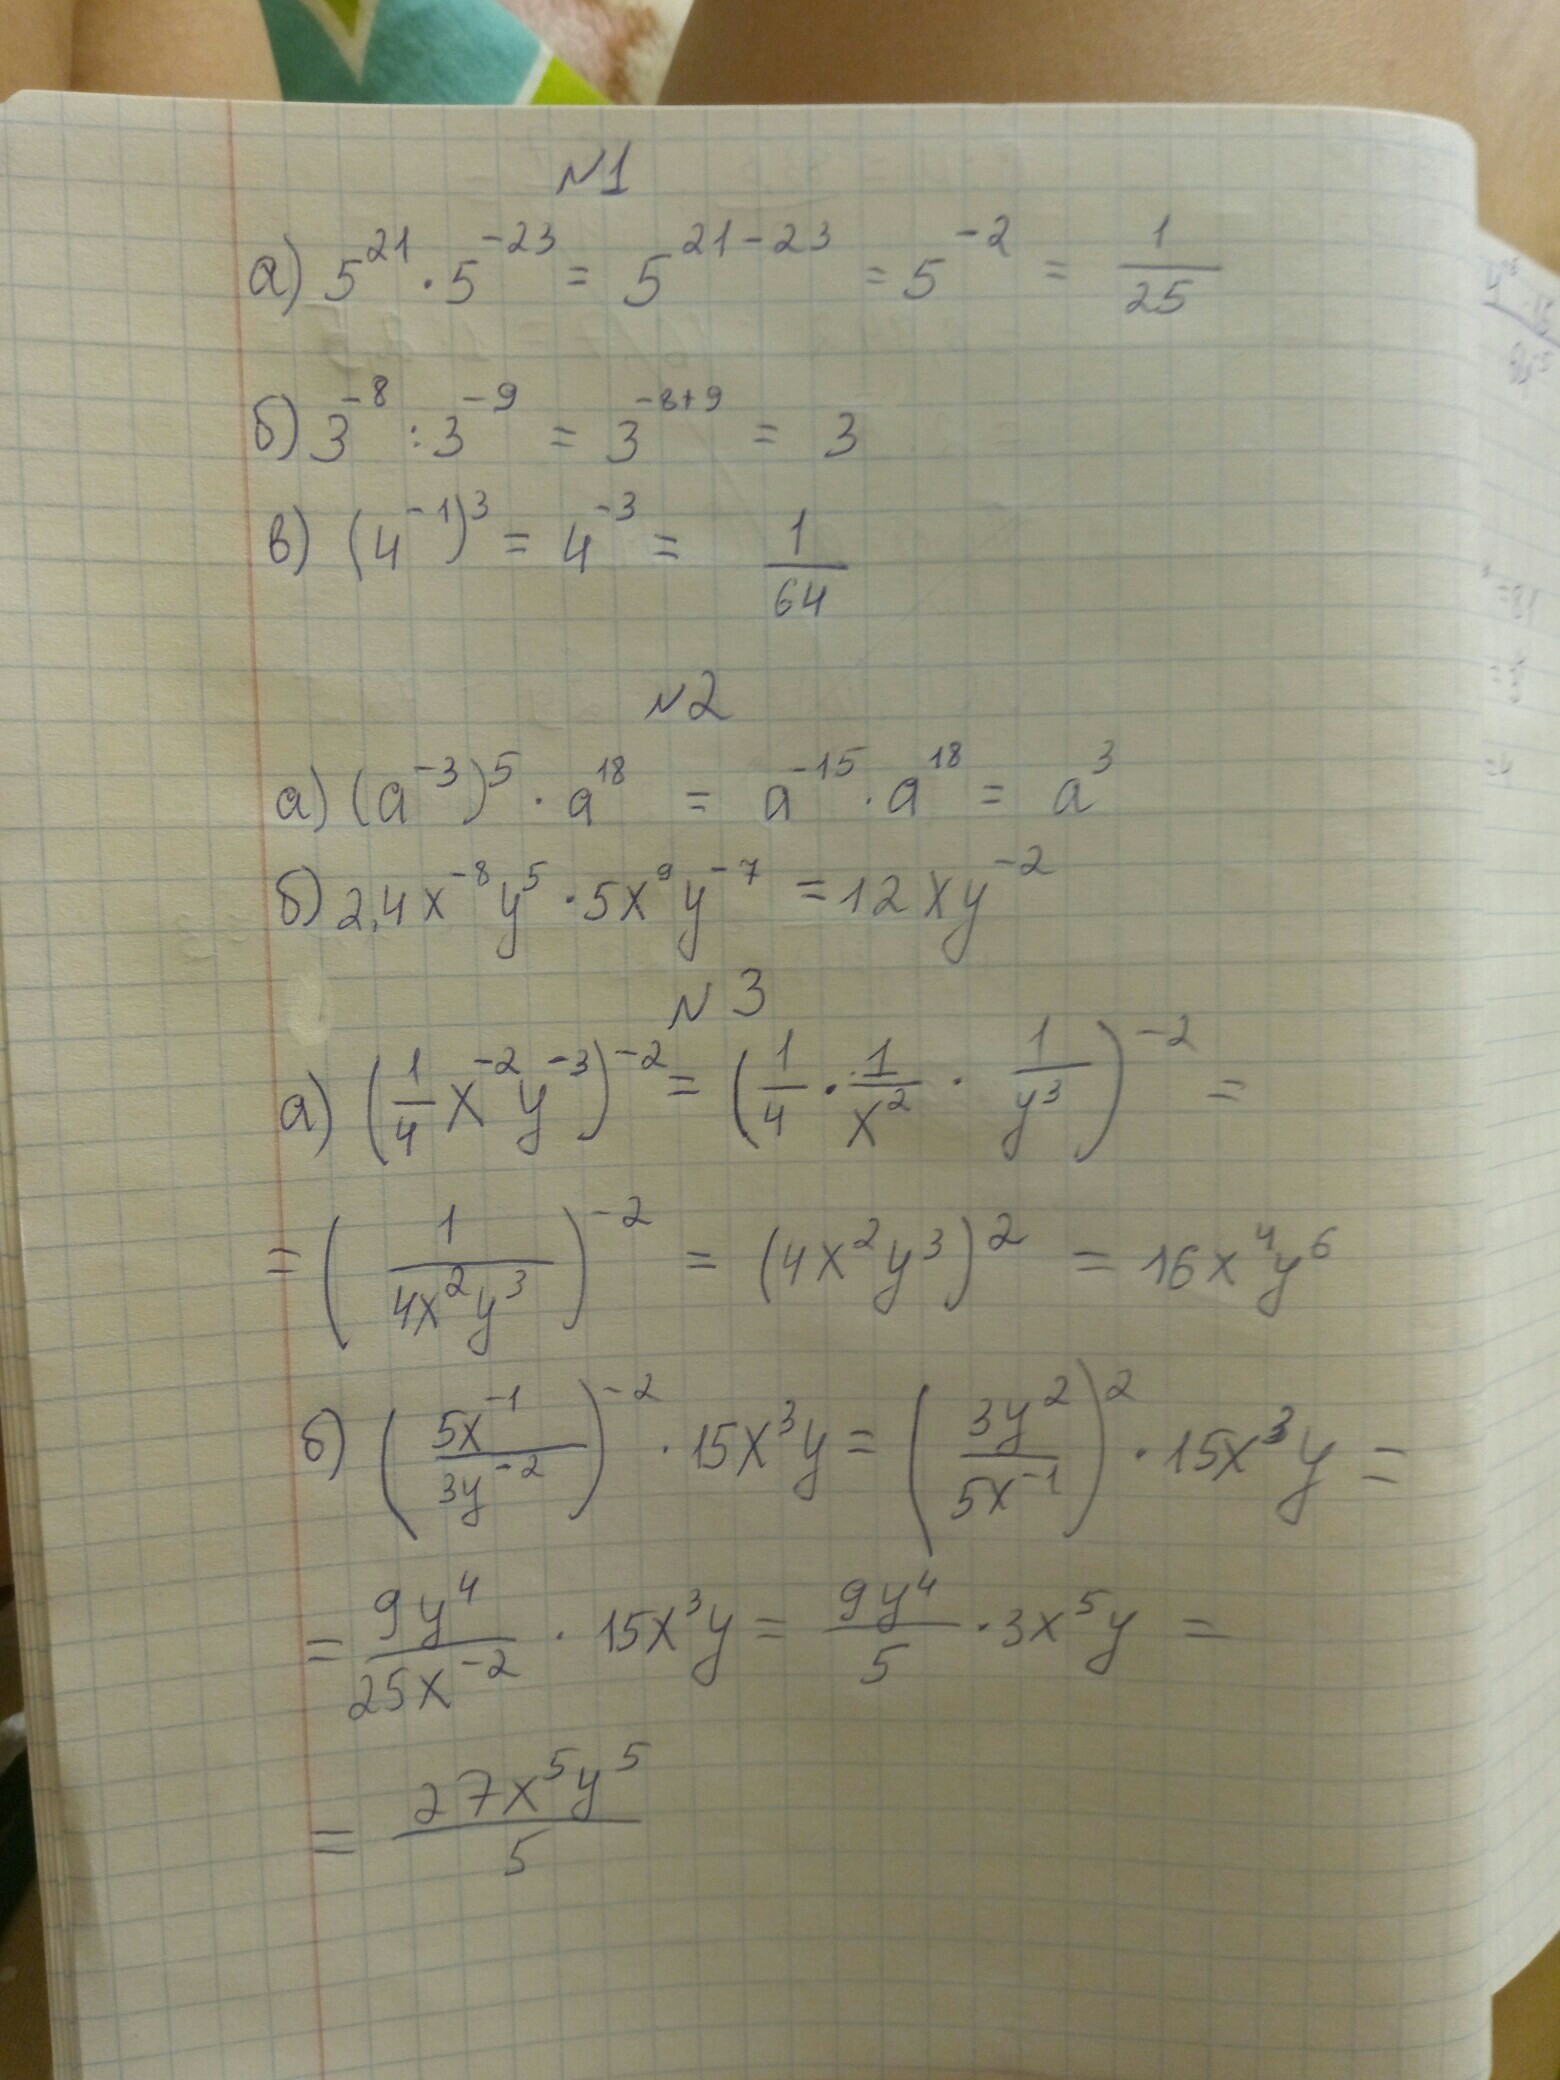 N1
а) 5^21 · 5^-23 = 5^21-23 = 5^-2 = 1/25
б) 3^-8 : 3^-9 = 3^-8+9 = 3
в) (4^-1)^3 = 4^-3 = 1/64
N2
а) (a^-3)^5 · a^18 = a^-15 · a^18 = a^3
б) 2,4x^-8y^5 · 5x^9y^-7 = 12xy^-2
N3
а) (1/4 x^-2y^-3)^-2 = (1/4 · 1/x^2 · 1/y^3)^-2 =
= (1/(4x^2y^3))^-2 = (4x^2y^3)^2 = 16x^4y^6
б) (5x^-1/3y^-2)^-2 · 15x^3y = (3y^2/5x^-1)^2 · 15x^3y =
= 9y^4/25x^-2 · 15x^3y = 9y^4/5 · 3x^5y =
= 27x^5y^5/5